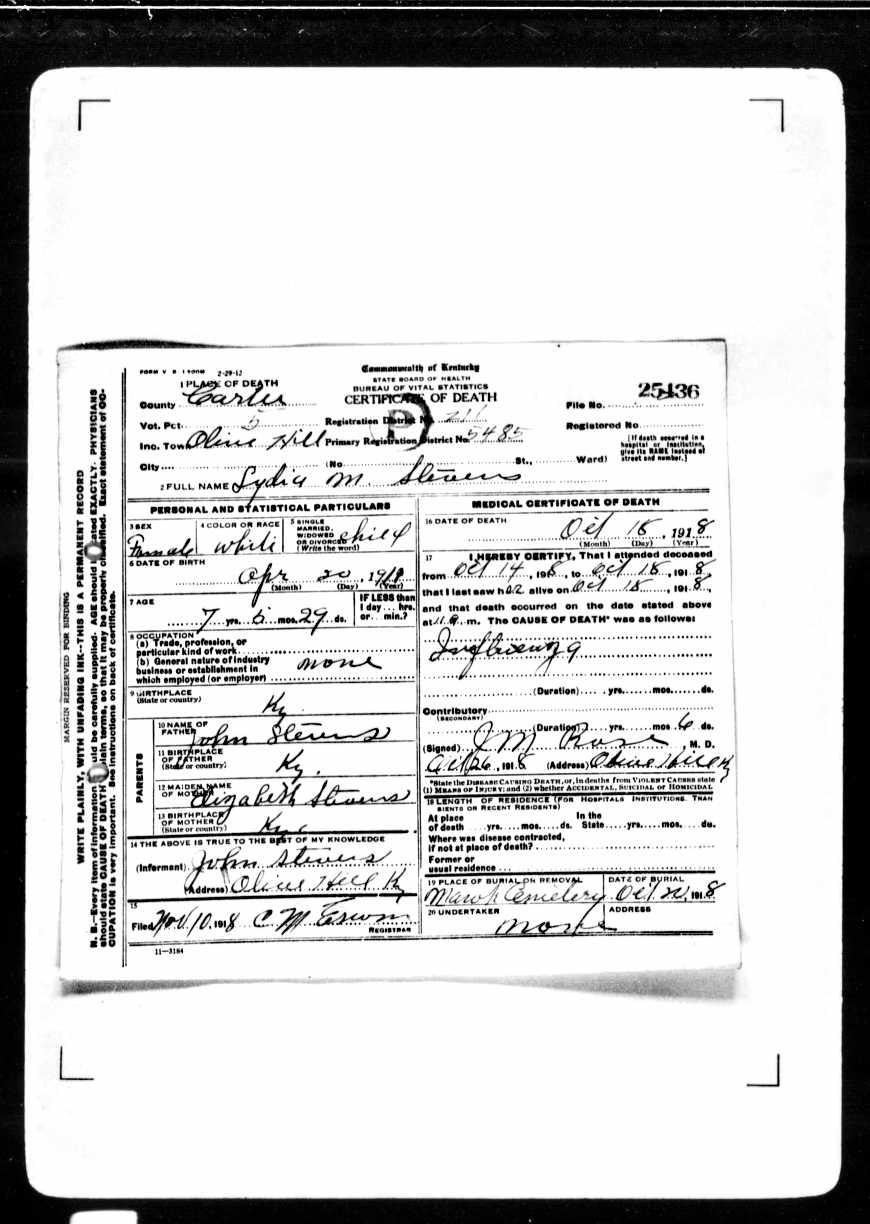 FORM V S 1 2-29-12
Commonwealth of Kentucky
STATE BOARD OF HEALTH
BUREAU OF VITAL STATISTICS
CERTIFICATE OF DEATH
1 PLACE OF DEATH
County Carter
File No. 25436
Vot. Pct. 5 Registration District No. 211 Registered No.
Inc. Town Olive Hill Primary Registration District No. 5485
City (No. St., Ward)
[If death occurred in a hospital or institution, give its NAME instead of street and number.]
2 FULL NAME Lydia M. Stevens
PERSONAL AND STATISTICAL PARTICULARS
3 SEX
Female
4 COLOR OR RACE
white
5 SINGLE
MARRIED,
WIDOWED
OR DIVORCED
(Write the word)
child
6 DATE OF BIRTH
Apr 20, 1911
(Month) (Day) (Year)
7 AGE
7 yrs. 5 mos. 29 ds.
IF LESS than
1 day... hrs.
or... min.?
8 OCCUPATION
(a) Trade, profession, or
particular kind of work
(b) General nature of industry
business or establishment in
which employed (or employer)
none
9 BIRTHPLACE
(State or country)
Ky.
PARENTS
10 NAME OF
FATHER
John Stevens
11 BIRTHPLACE
OF FATHER
(State or country)
Ky.
12 MAIDEN NAME
OF MOTHER
Elizabeth Stevens
13 BIRTHPLACE
OF MOTHER
(State or country)
Ky
14 THE ABOVE IS TRUE TO THE BEST OF MY KNOWLEDGE
(Informant) John Stevens
(Address) Olive Hill Ky
15
Filed Nov 10, 1918 C M Erwin
REGISTRAR
11-3184
MEDICAL CERTIFICATE OF DEATH
16 DATE OF DEATH
Oct 18, 1918
(Month) (Day) (Year)
17 I HEREBY CERTIFY, That I attended deceased
from Oct 14, 1918, to Oct 18, 1918
that I last saw her alive on Oct 18, 1918,
and that death occurred on the date stated above
at 11 a. m. The CAUSE OF DEATH* was as follows:
Influenza
(Duration) yrs. mos. ds.
Contributory
(SECONDARY)
(Duration) yrs. mos. 6 ds.
(Signed) J M Rose, M. D.
Oct 26, 1918 (Address) Olive Hill Ky
*State the DISEASE CAUSING DEATH, or, in deaths from VIOLENT CAUSES state
(1) MEANS OF INJURY; and (2) whether ACCIDENTAL, SUICIDAL OR HOMICIDAL
18 LENGTH OF RESIDENCE (FOR HOSPITALS INSTITUTIONS, TRANSIENTS OR RECENT RESIDENTS)
At place In the
of death yrs. mos. ds. State yrs. mos. ds.
Where was disease contracted,
if not at place of death?
Former or
usual residence
19 PLACE OF BURIAL OR REMOVAL
Cemetery
DATE OF BURIAL
Oct 20, 1918
20 UNDERTAKER
none
ADDRESS
MARGIN RESERVED FOR BINDING
WRITE PLAINLY, WITH UNFADING INK--THIS IS A PERMANENT RECORD
N. B.-Every item of information should be carefully supplied. AGE should be stated EXACTLY. PHYSICIANS
should state CAUSE OF DEATH in plain terms, so that it may be properly classified. Exact statement of OC-
CUPATION is very important. See instructions on back of certificate.